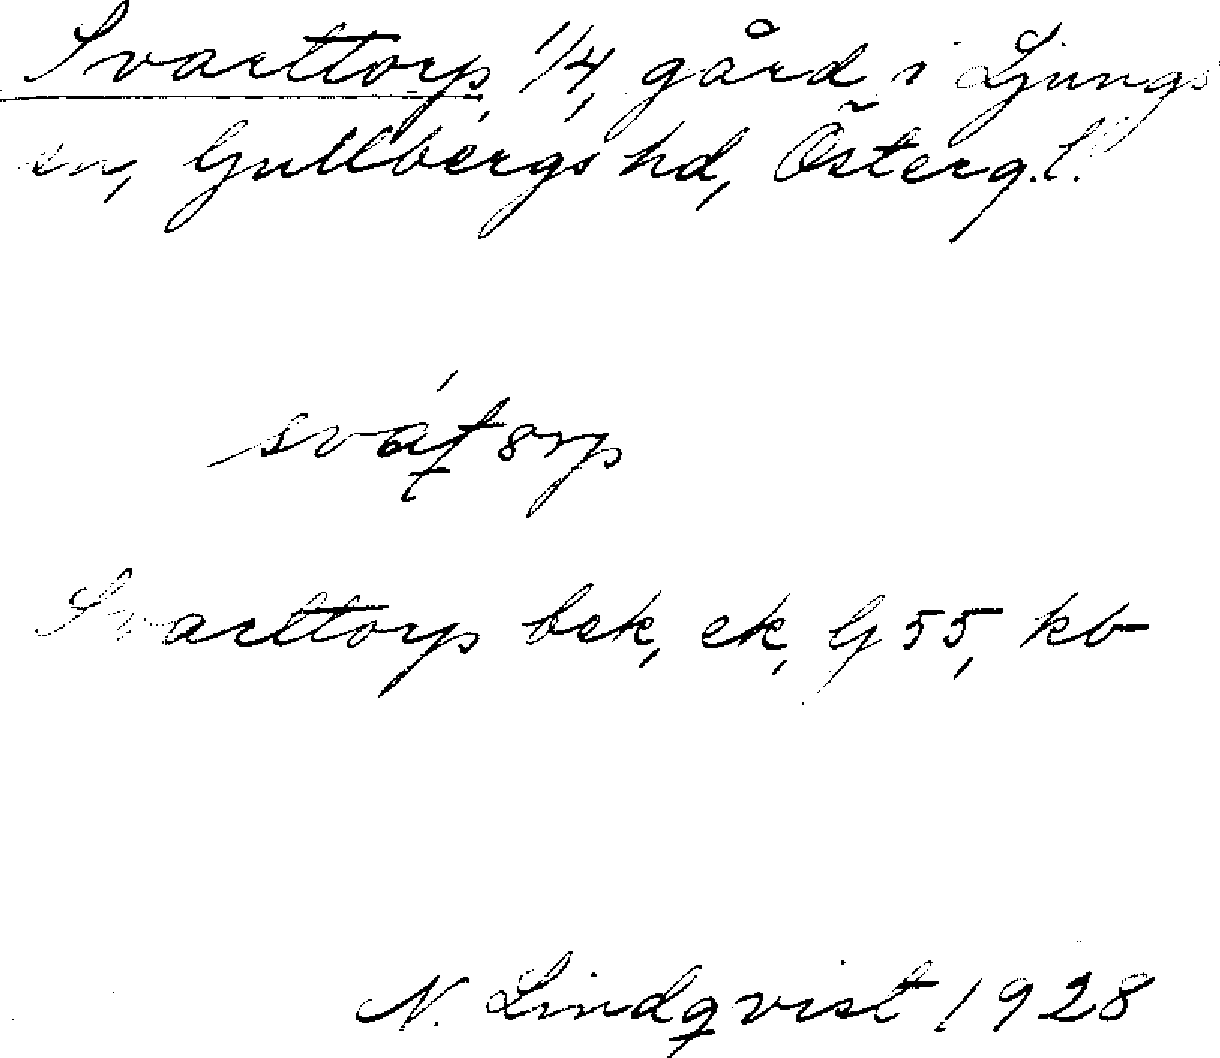 Svarttorp, 1/4, gård i Ljungs
sn, Gullbergs hd, Österg.l.
Svarttorp bek, ek, G 55, kb
N. Lindqvist 1928